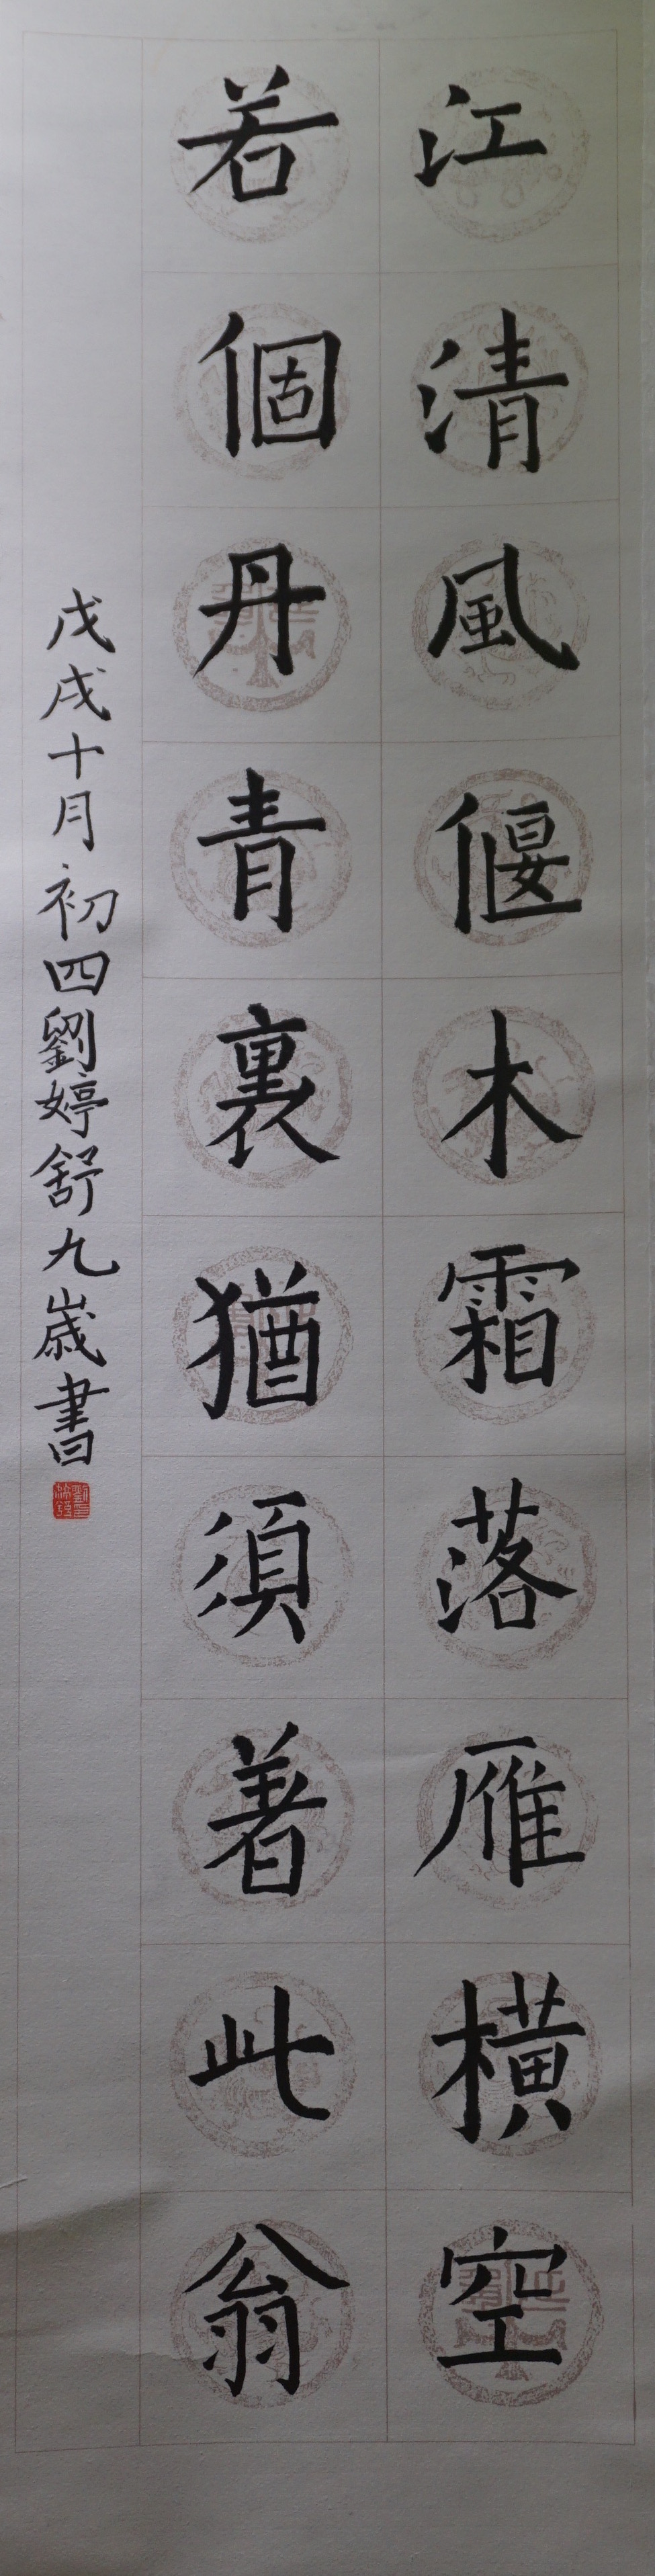 江清風偃木霜落雁橫空
若個丹青裏猶須著此翁
戊戌十月初四劉婷舒九歲書